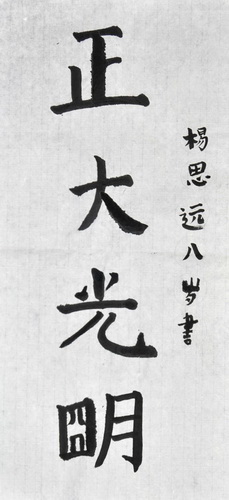 正大光明
楊思远八岁書